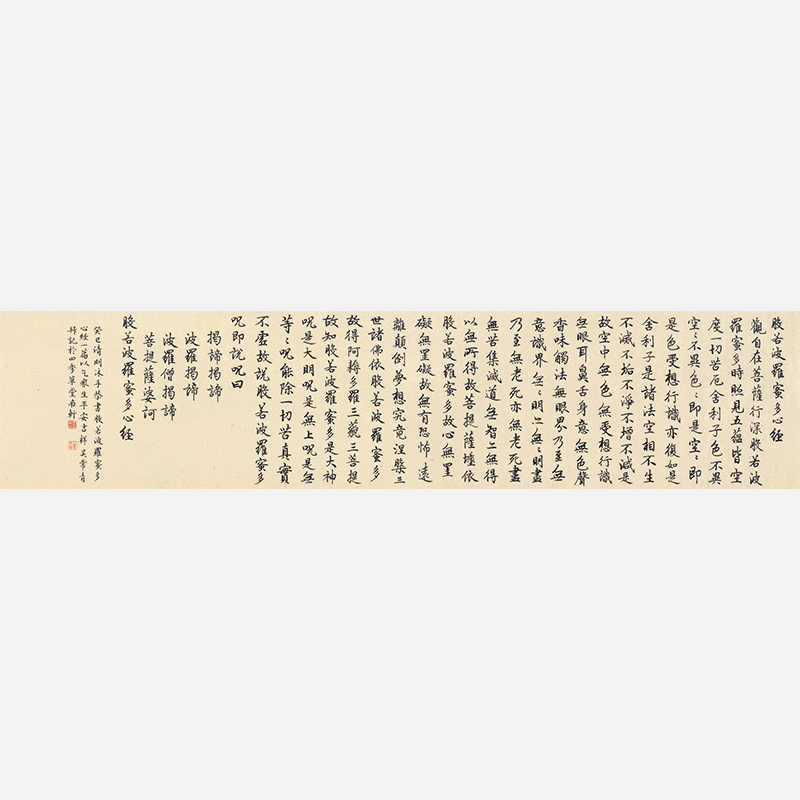 般若波羅蜜多心經
觀自在菩薩行深般若波
羅蜜多時照見五蘊皆空
度一切苦厄舍利子色不異
空〻不異色〻即是空〻即
是色受想行識亦復如是
舍利子是諸法空相不生
不滅不垢不淨不增不減是
故空中無色無受想行識
無眼耳鼻舌身意無色聲
香味觸法無眼界乃至無
意識界無〻明亦無〻明盡
乃至無老死亦無老死盡
無苦集滅道無智亦無得
以無所得故菩提薩埵依
般若波羅蜜多故心無罣
礙無罣礙故無有恐怖遠
離顛倒夢想究竟涅槃三
世諸佛依般若波羅蜜多
故得阿耨多羅三藐三菩提
故知般若波羅蜜多是大神
咒是大明咒是無上咒是無
等〻咒能除一切苦真實
不虛故說般若波羅蜜多
咒即說咒曰
揭諦揭諦
波羅揭諦
波羅僧揭諦
菩提薩婆訶
般若波羅蜜多心經
癸巳清明沐手恭書般若波羅蜜多
心經一篇以乞眾生平安吉祥吴常青
并記於四季草堂南軒